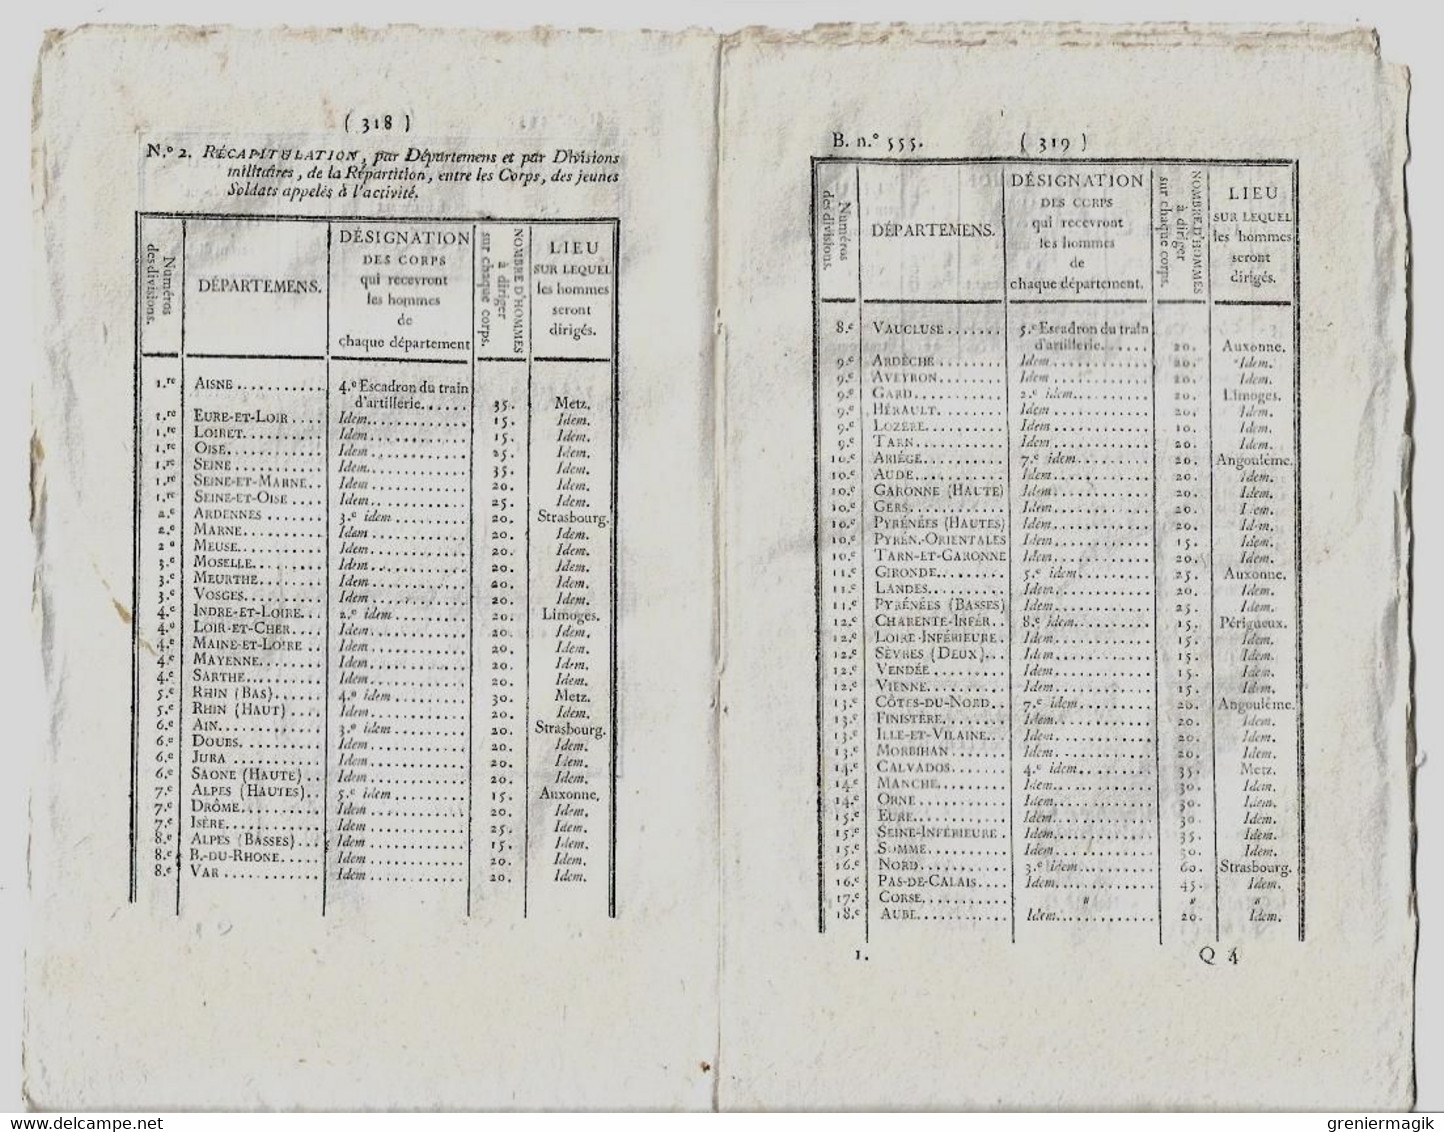 ( 318 )
N.º 2. RÉCAPITULATION, par Départemens et par Divisions
militaires, de la Répartition, entre les Corps, des jeunes
Soldats appelés à l'activité.
Numéros des divisions. DÉPARTEMENS. DÉSIGNATION DES CORPS qui recevront les hommes de chaque département NOMBRE D'HOMMES à diriger sur chaque corps. LIEU SUR LEQUEL les hommes seront dirigés.
1.re AISNE........... 4.e Escadron du train
d'artillerie...... 35. Metz.
1.re EURE-ET-LOIR.... Idem............ 15. Idem.
1.re LOIRET.......... Idem............ 15. Idem.
1.re OISE............ Idem............ 25. Idem.
1.re SEINE........... Idem............ 35. Idem.
1.re SEINE-ET-MARNE.. Idem............ 20. Idem.
1.re SEINE-ET-OISE.... Idem............ 25. Idem.
2.e ARDENNES....... 3.e idem......... 20. Strasbourg.
2.e MARNE.......... Idem............ 20. Idem.
2.e MEUSE........... Idem............ 20. Idem.
3.e MOSELLE........ Idem............ 20. Idem.
3.e MEURTHE........ Idem............ 20. Idem.
3.e VOSGES.......... Idem............ 20. Idem.
4.e INDRE-ET-LOIRE... 2.e idem......... 20. Limoges.
4.e LOIR-ET-CHER.... Idem............ 20. Idem.
4.e MAINE-ET-LOIRE.. Idem............ 20. Idem.
4.e MAYENNE........ Idem............ 20. Idem.
4.e SARTHE.......... Idem............ 20. Idem.
5.e RHIN (BAS)...... 4.e idem......... 30. Metz.
5.e RHIN (HAUT).... Idem............ 20. Idem.
6.e AIN............. 3.e idem......... 20. Strasbourg.
6.e DOUBS........... Idem............ 20. Idem.
6.e JURA............ Idem............ 20. Idem.
6.e SAONE (HAUTE).. Idem............ 20. Idem.
7.e ALPES (HAUTES).. 5.e idem......... 15. Auxonne.
7.e DRÔME........... Idem............ 20. Idem.
7.e ISÈRE............ Idem............ 25. Idem.
8.e ALPES (BASSES)... Idem............ 15. Idem.
8.e B.-DU-RHONE..... Idem............ 20. Idem.
8.e VAR............. Idem............ 20. Idem.
B. n.º 555. ( 319 )
Numéros des divisions. DÉPARTEMENS. DÉSIGNATION DES CORPS qui recevront les hommes de chaque département. NOMBRE D'HOMMES à diriger sur chaque corps. LIEU SUR LEQUEL les hommes seront dirigés.
8.e VAUCLUSE....... 5.e Escadron du train
d'artillerie...... 20. Auxonne.
9.e ARDÈCHE........ Idem............ 20. Idem.
9.e AVEYRON........ Idem............ 20. Idem.
9.e GARD........... 2.e idem......... 20. Limoges.
9.e HÉRAULT........ Idem............ 20. Idem.
9.e LOZÈRE.......... Idem............ 10. Idem.
9.e TARN............ Idem............ 20. Idem.
10.e ARIÈGE.......... 7.e idem......... 20. Angoulême.
10.e AUDE............ Idem............ 20. Idem.
10.e GARONNE (HAUTE) Idem............ 20. Idem.
10.e GERS............ Idem............ 20. Idem.
10.e PYRÉNÉES (HAUTES) Idem............ 20. Idem.
10.e PYRÉN.-ORIENTALES Idem............ 15. Idem.
10.e TARN-ET-GARONNE Idem............ 20. Idem.
11.e GIRONDE......... 5.e idem......... 25. Auxonne.
11.e LANDES.......... Idem............ 20. Idem.
11.e PYRÉNÉES (BASSES) Idem............ 25. Idem.
12.e CHARENTE-INFÉR.. 8.e idem......... 15. Périgueux.
12.e LOIRE-INFÉRIEURE. Idem............ 15. Idem.
12.e SÈVRES (DEUX)... Idem............ 15. Idem.
12.e VENDÉE......... Idem............ 15. Idem.
12.e VIENNE.......... Idem............ 15. Idem.
13.e CÔTES-DU-NORD.. 7.e idem......... 20. Angoulême.
13.e FINISTÈRE........ Idem............ 20. Idem.
13.e ILLE-ET-VILAINE... Idem............ 20. Idem.
13.e MORBIHAN....... Idem............ 20. Idem.
14.e CALVADOS....... 4.e idem......... 35. Metz.
14.e MANCHE......... Idem............ 30. Idem.
14.e ORNE............ Idem............ 30. Idem.
15.e EURE............ Idem............ 30. Idem.
15.e SEINE-INFÉRIEURE. Idem............ 35. Idem.
15.e SOMME.......... Idem............ 30. Idem.
16.e NORD........... 3.e idem......... 60. Strasbourg.
16.e PAS-DE-CALAIS.... Idem............ 45. Idem.
17.e CORSE........... " " "
18.e AUBE............ Idem............ 20. Idem.
1. Q 4
delcampe.net
greniermagik